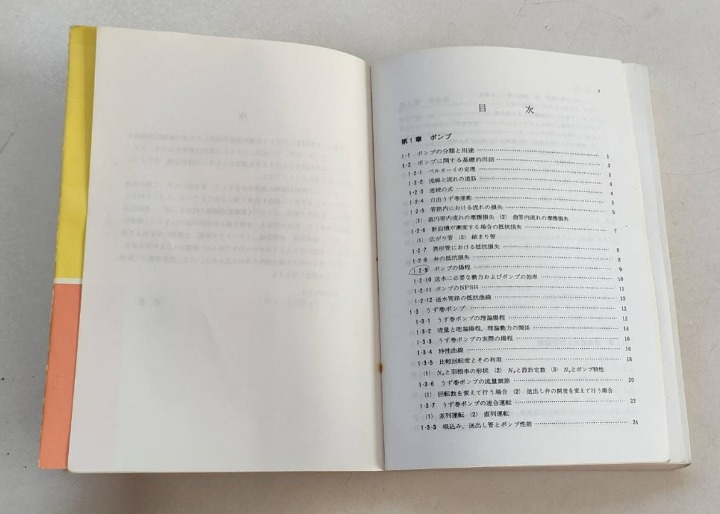 目 次
第1章 ポンプ
1・1 ポンプの分類と用途 1
1・2 ポンプに関する基礎的用語
1・2・1 ベルヌーイの定理
1・2・2 流線と流れの道筋
1・2・3 連続の式
1・2・4 自由うず巻運動
1・2・5 管路内における流れの損失
(1) 直円管内流れの摩擦損失 (2) 曲管内流れの摩擦損失
1・2・6 断面積が漸変する場合の抵抗損失 7
(1) 広がり管 (2) 細まり管
1・2・7 異形管における抵抗損失 8
1・2・8 弁の抵抗損失 8
1・2・9 ポンプの揚程 9
1・2・10 送水に必要な動力およびポンプの効率 9
1・2・11 ポンプのNPSH 11
1・2・12 送水管路の抵抗曲線 12
1・3 うず巻ポンプ 12
1・3・1 うず巻ポンプの理論揚程 12
1・3・2 流量と理論揚程，理論動力の関係 14
1・3・3 うず巻ポンプの実際の揚程 16
1・3・4 特性曲線 16
1・3・5 比較回転度とその利用 18
(1) Nsと羽根車の形状 (2) Nsと設計定数 (3) Nsとポンプ特性
1・3・6 うず巻ポンプの流量調節 20
(1) 回転数を変えて行う場合 (2) 送出し弁の開度を変えて行う場合
1・3・7 うず巻ポンプの連合運転 22
(1) 並列運転 (2) 直列運転
1・3・8 吸込み，送出し管とポンプ性能 24